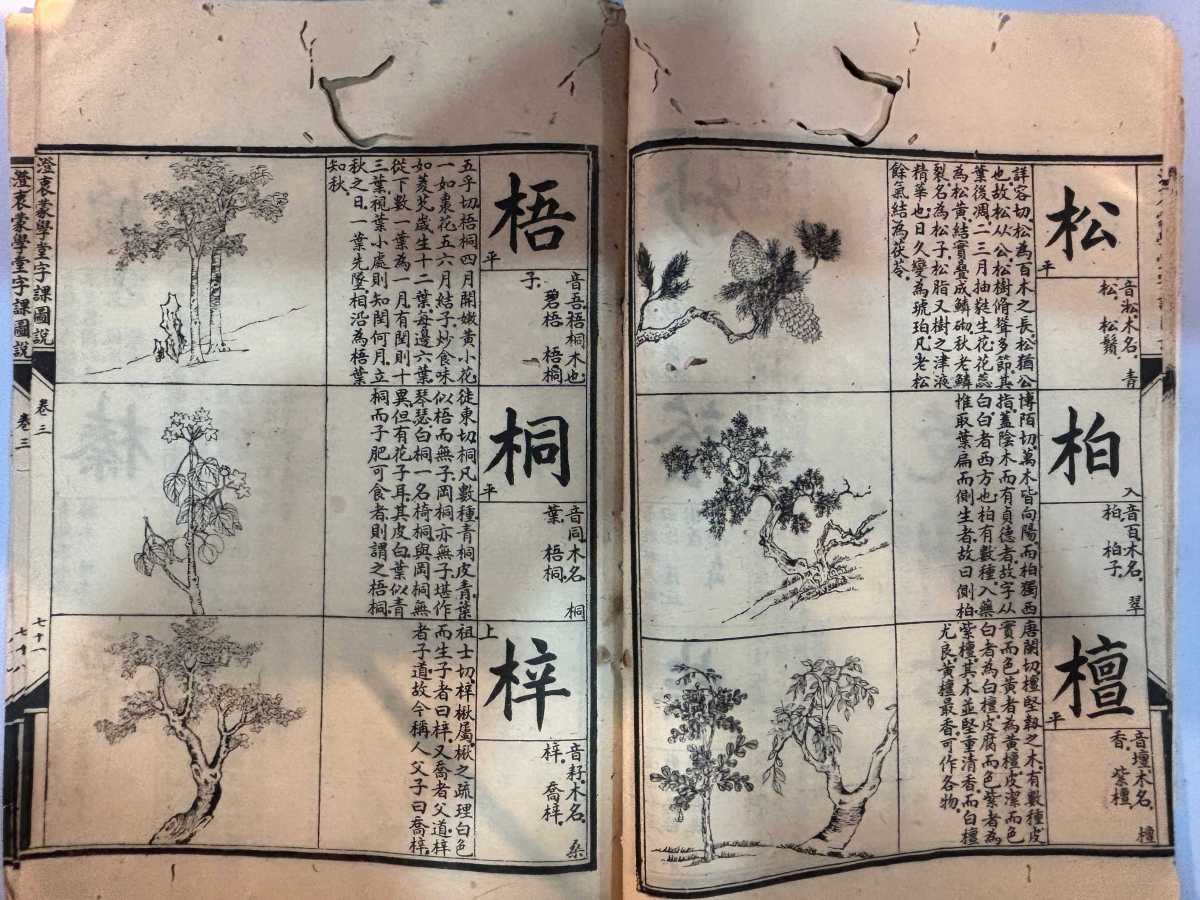 松
平
音淞.木名.青
松.松鬚.
詳容切.松為百木之長.松猶公
也.故松从公.松樹脩聳多節.其
葉後凋.二三月抽蕤生花.花蕊
為松黃.結實疊成鱗砌.秋老鱗
裂.名為松子.松脂又樹之津液
精華也.日久變為琥珀.凡老松
餘氣結為茯苓.
柏
入
音百.木名.翠
柏.柏子.
博陌切.萬木皆向陽.而柏獨西
指.蓋陰木而有貞德者.故字从
白.白者西方也.柏有數種.入藥
惟取葉扁而側生者.故曰側柏.
檀
平
音壇.木名.檀
香.紫檀.
唐闌切.檀堅靱之木.有數種.皮
實而色黃者為黃檀.皮潔而色
白者為白檀.皮腐而色紫者為
紫檀.其木並堅重清香.而白檀
尤良.黃檀最香.可作各物.
梧
平
音吾.梧桐木也
子.碧梧.梧桐
五乎切.梧桐四月開嫩黃小花.
一如棗花.五六月結子.炒食味
如菱芡.歲生十二葉.每邊六葉.
從下數一葉為一月.有閏則十
三葉.視葉小處則知閏何月.立
秋之日.一葉先墜.相沿為梧葉
知秋.
桐
平
音同.木名.桐
葉.梧桐.
徒東切.桐凡數種.青桐皮青.葉
似梧而無子.岡桐亦無子.堪作
琴瑟.白桐一名椅桐.與岡桐無
異.但有花子耳.其皮白.葉似青
桐而子肥可食者.則謂之梧桐.
梓
上
音籽.木名.桑
梓.喬梓.
祖士切.梓.楸屬.楸之疏理白色
而生子者曰梓.又喬者父道.梓
者子道.故今稱人父子曰喬梓.
澄衷蒙學堂字課圖說
卷三
七十一
澄衷蒙學堂字課圖說
卷三